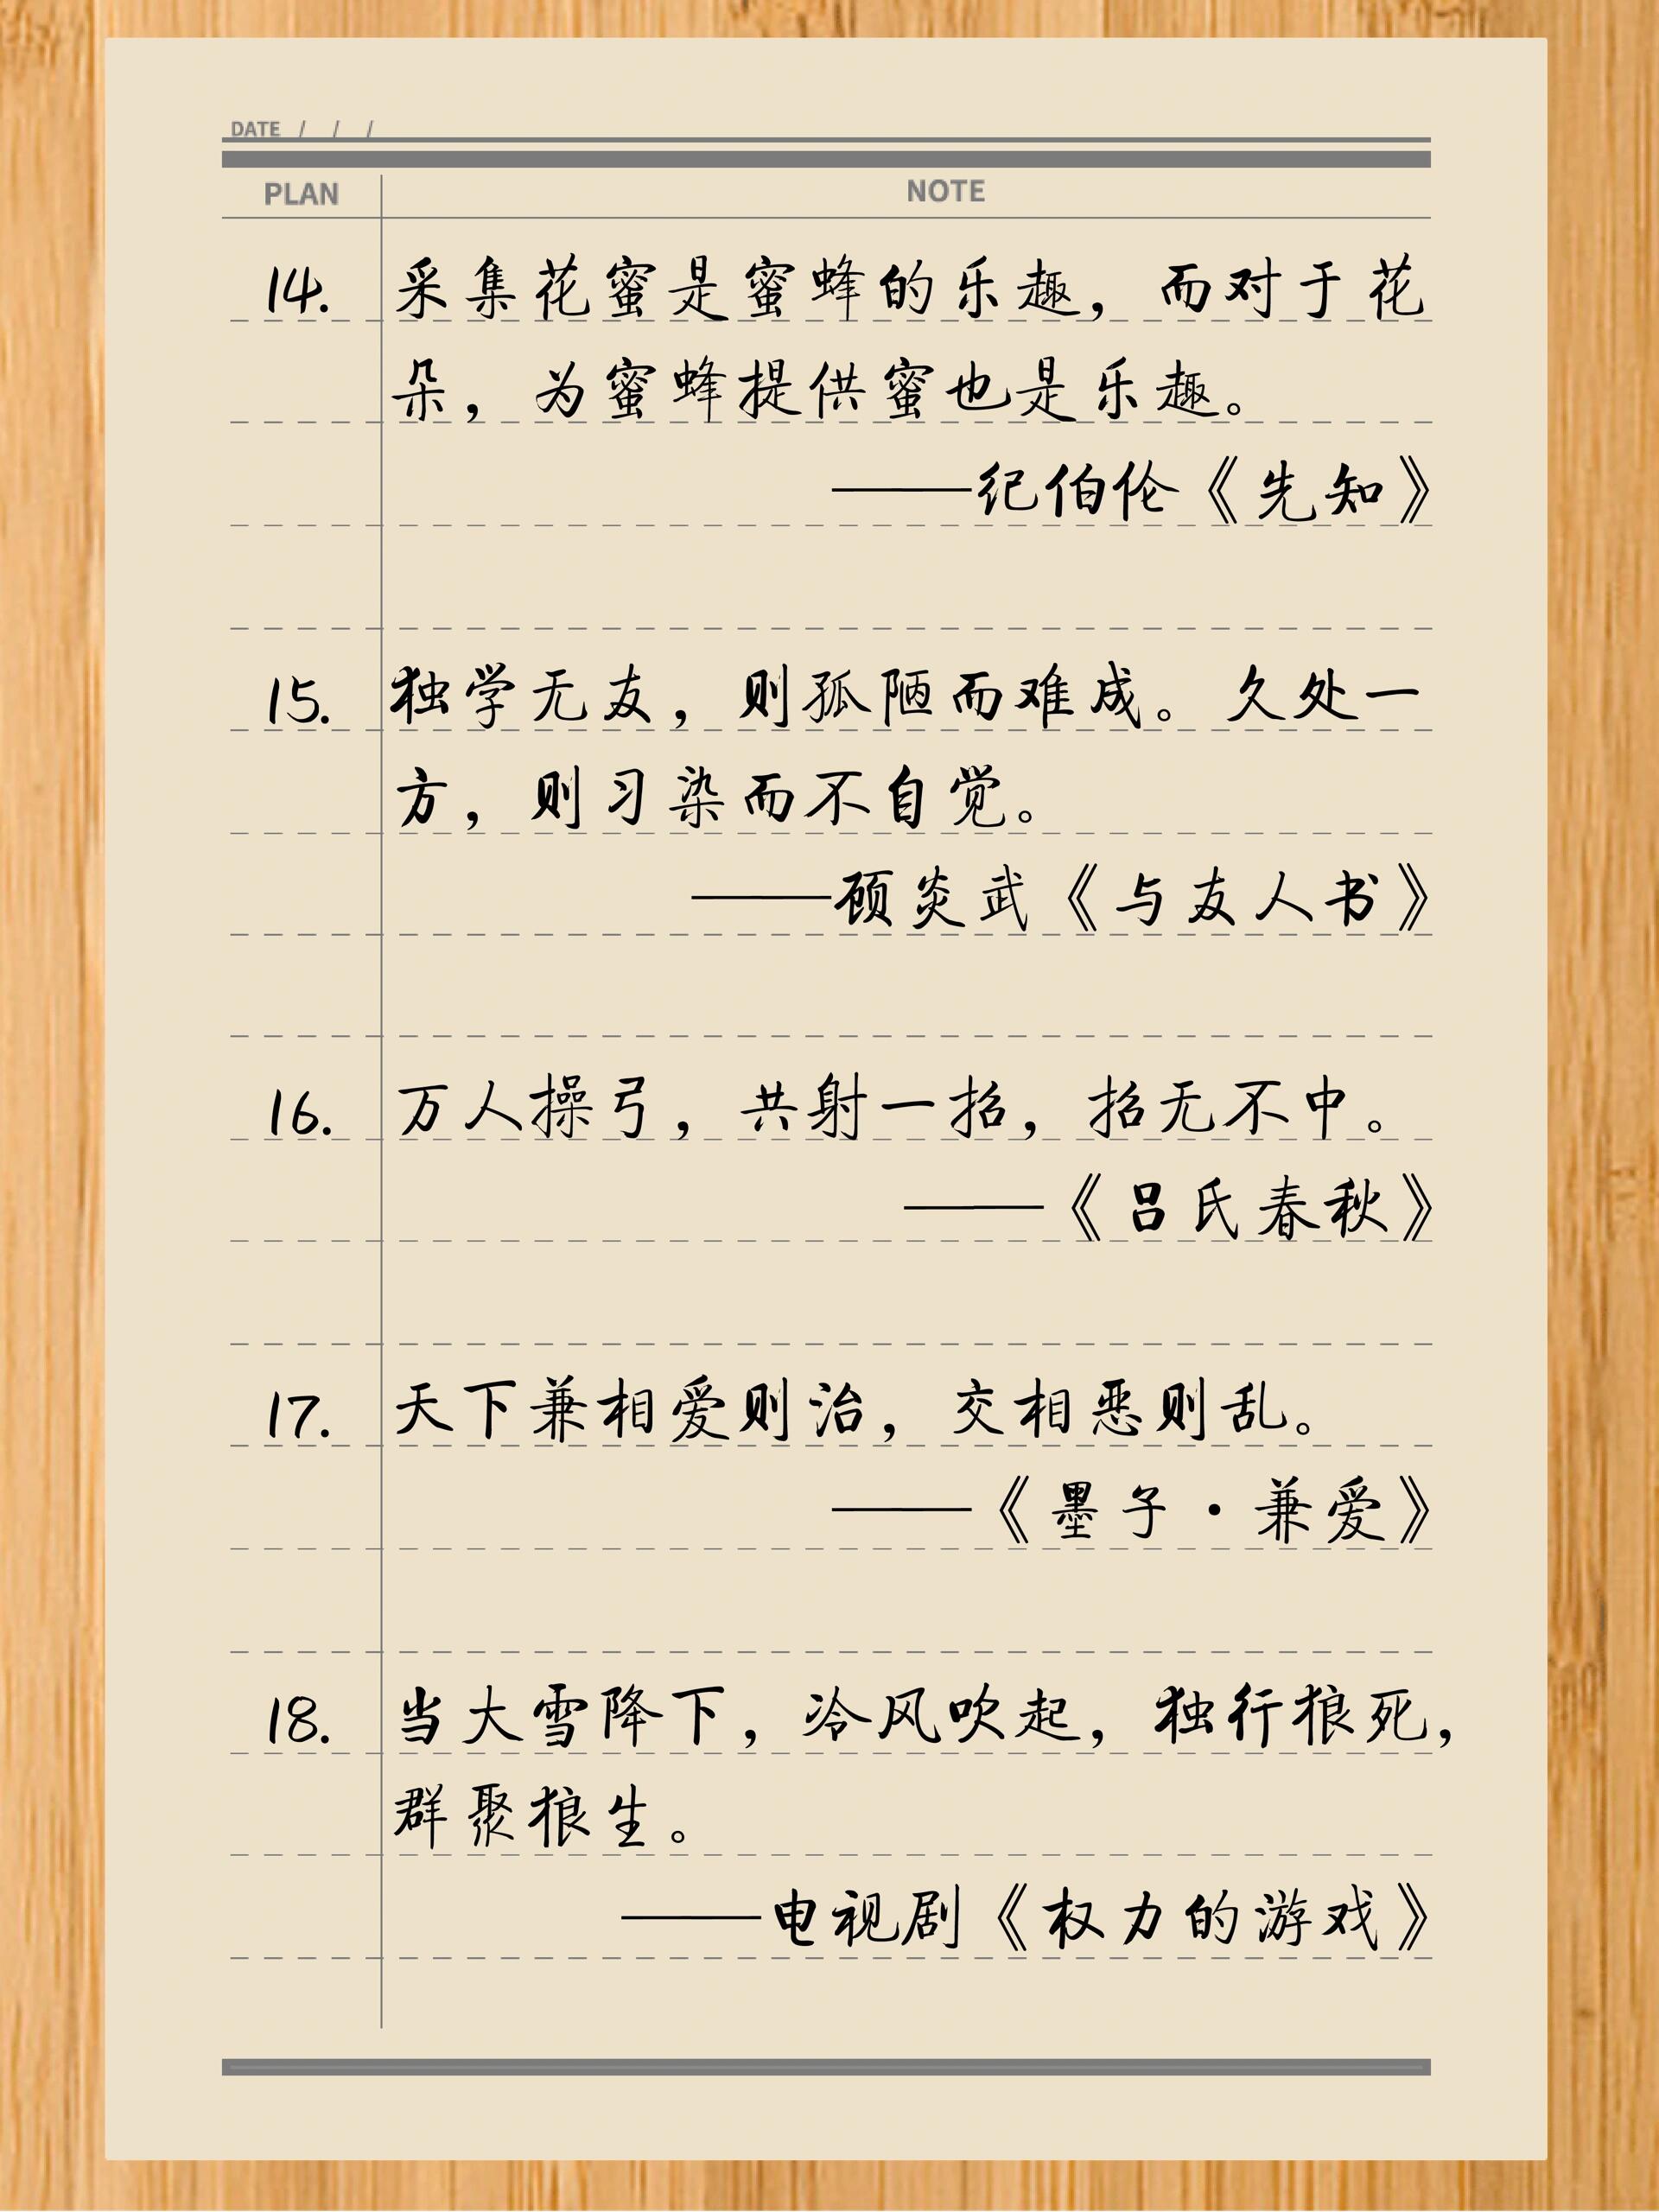 DATE / / /
PLAN NOTE
14. 采集花蜜是蜜蜂的乐趣，而对于花
朵，为蜜蜂提供蜜也是乐趣。
——纪伯伦《先知》
15. 独学无友，则孤陋而难成。久处一
方，则习染而不自觉。
——顾炎武《与友人书》
16. 万人操弓，共射一招，招无不中。
——《吕氏春秋》
17. 天下兼相爱则治，交相恶则乱。
——《墨子·兼爱》
18. 当大雪降下，冷风吹起，独行狼死，
群聚狼生。
——电视剧《权力的游戏》